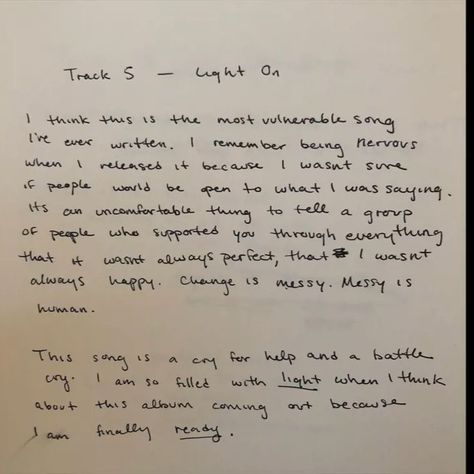 Track 5 — Light On
I think this is the most vulnerable song
I've ever written. I remember being nervous
when I released it because I wasnt sure
if people would be open to what I was saying.
Its an uncomfortable thing to tell a group
of people who supported you through everything
that it wasnt always perfect, that I wasnt
always happy. Change is messy. Messy is
human.
This song is a cry for help and a battle
cry. I am so filled with light when I think
about this album coming out because
I am finally ready.